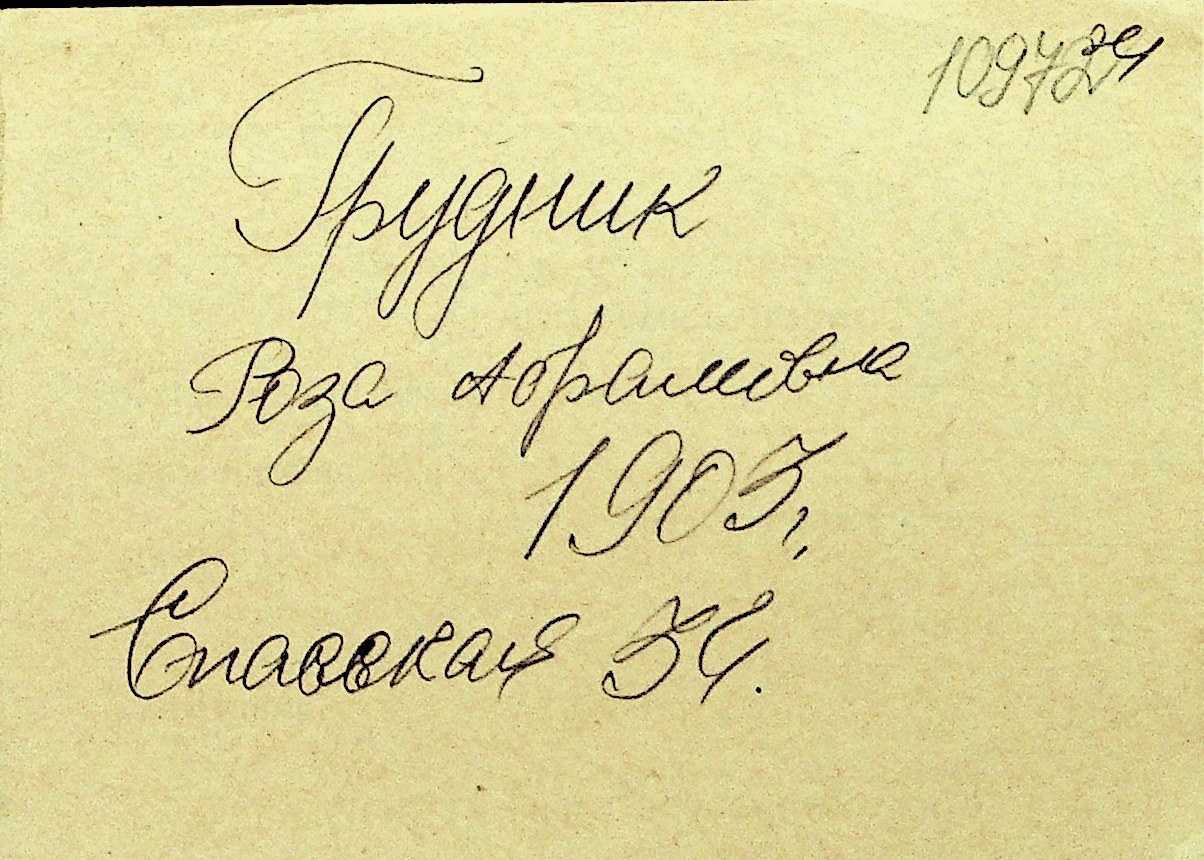 109724
Грудник
Роза Абрамовна
1903 г.
Спасская 34.